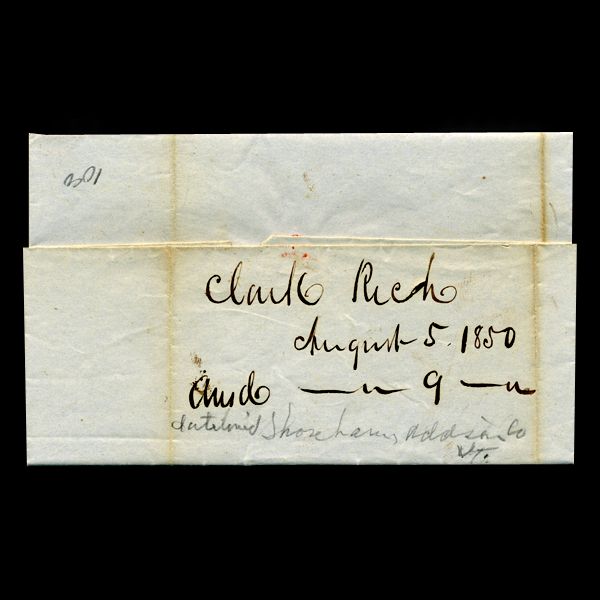 Clark Rich
August 5. 1850
Ansd — " 9 — "
datelined Shoreham, Addison Co
Vt.